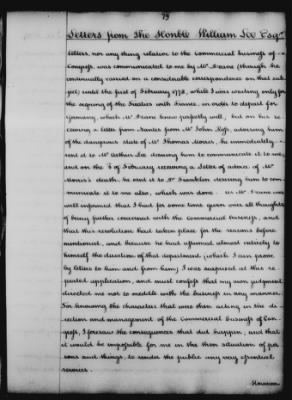 79
Letters from The Honble William Lee Esqr.
letters, nor any thing relative to the Commercial business of
Congress, was communicated to me by Mr Deane (though he
continually carried on a considerable correspondence on that sub-
ject) until the first of February 1778, while I was waiting only for
the signing of the Treaties with France, in order to depart for
Germany, which Mr Deane knew perfectly well, but on his re-
ceiving a letter from Nantes from Mr John Ross, advising him
of the dangerous state of Mr Thomas Morris, he immediately
sent it to Mr Arthur Lee desiring him to communicate it to me,
and on the 4 of February receiving a letter of advice of Mr
Morris's death, he sent it to Dr Franklin desiring him to com-
municate it to me also, which was done. As Mr Deane was
well informed that I had for some time given over all thoughts
of being further concerned with the Commercial business, and
that this resolution had taken place for the reasons before
mentioned, and because he had assumed almost entirely to
himself the direction of that department, which I can prove
by letters to him and from him; I was surprised at this re-
peated application, and must confess that my own judgment
directed me not to meddle with the business in any manner.
For knowing the characters that were then acting in the di-
rection and management of the Commercial business of Con-
gress, I foresaw the consequences that did happen, and that
it would be impossible for me in the then situation of per-
sons and things, to render the public any very essential
services.
However